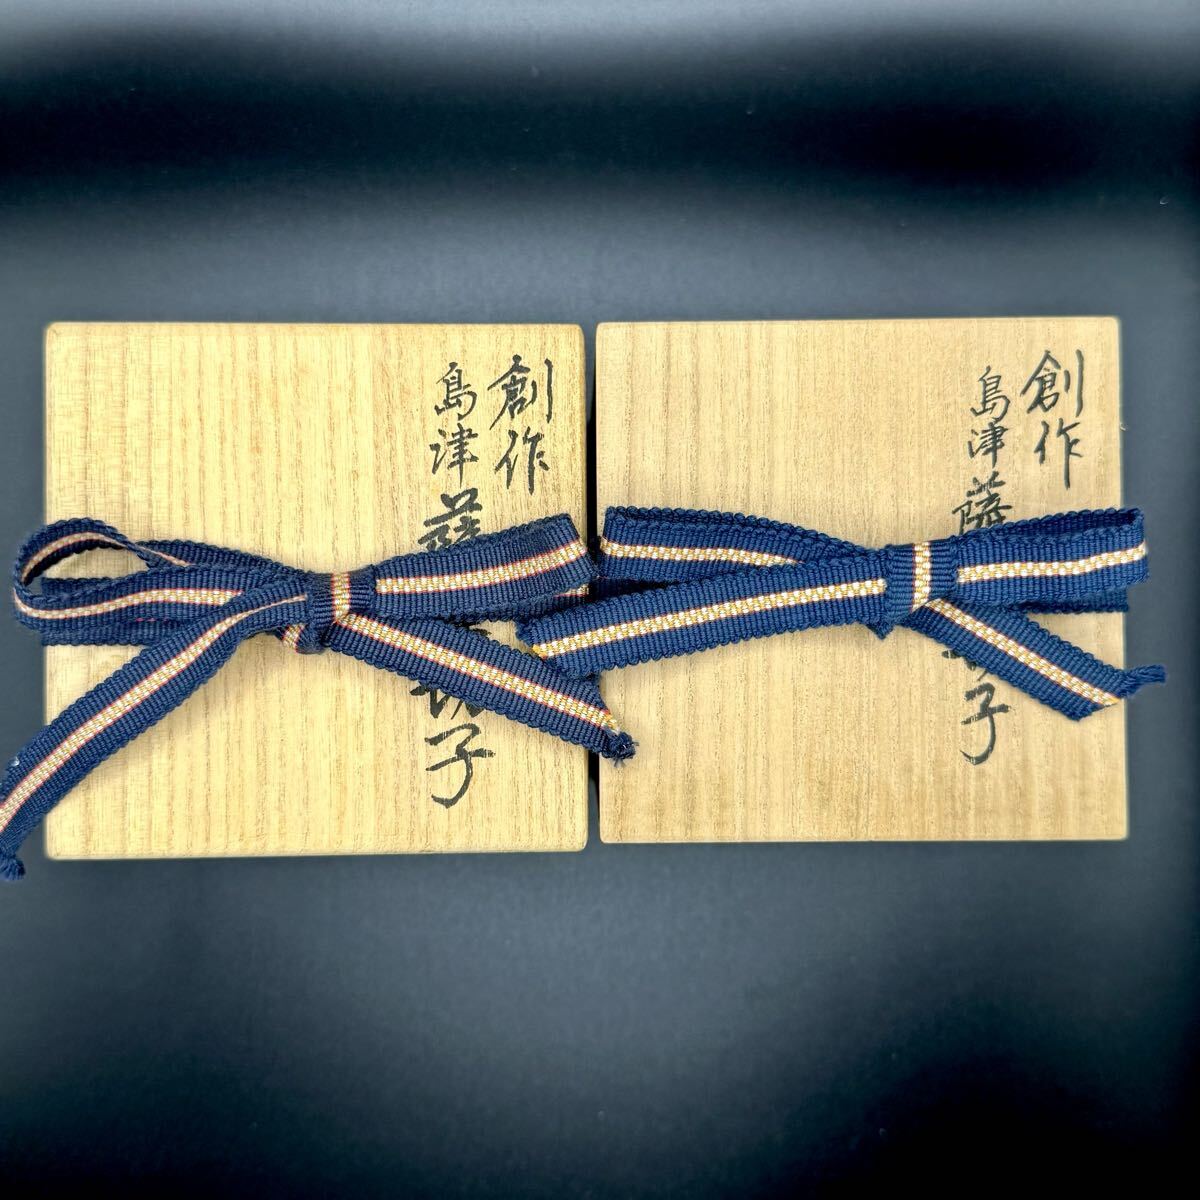 創作
島津薩
切子
創作
島津薩
子